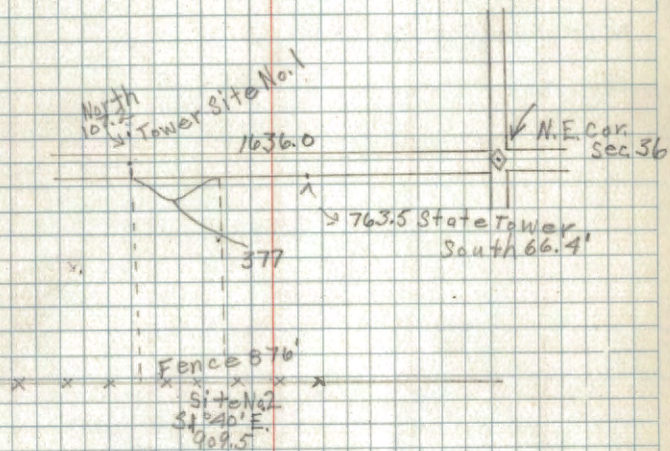 North
Tower Site No. 1
1636.0
N.E. cor.
Sec 36
763.5 State Tower
South 66.4'
377
Fence 876'
Site No2
S1°40'E.
909.5